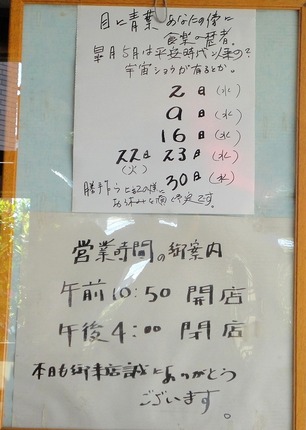 目に青葉 あなたの傍に
食楽の歴者。
皐月5月は平安時代以来の?
宇宙ショウが有るとか。
2日(水)
9日(水)
16日(水)
22日 23日(水)
(火)
30日(水)
勝手乍ら上記の様に
お休みを頂く予定です。
営業時間の御案内
午前10:50 開店
午後4:00 閉店
本日も御来店誠にありがとう
ございます。